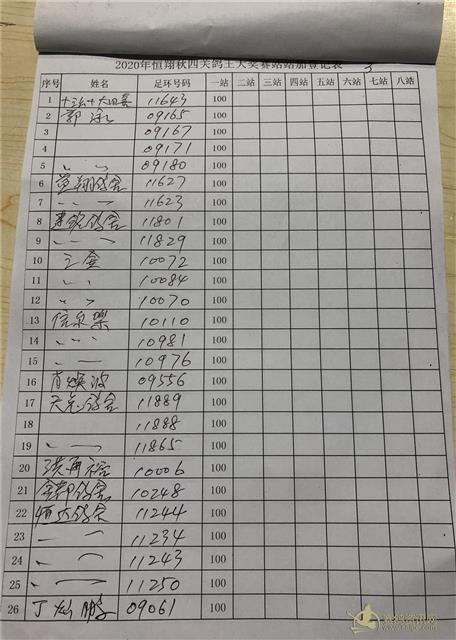 2020年恒翔秋四关鸽王大奖赛站站加登记表
序号 姓名 足环号码 一站 二站 三站 四站 五站 六站 七站 八站
1 11643 100
2 郭 09165 100
3 09167 100
4 09171 100
5 〃 〃 09180 100
6 翔鸽舍 11627 100
7 〃 〃 11623 100
8 鸽舍 11801 100
9 〃 〃 11829 100
10 10072 100
11 〃 〃 10084 100
12 〃 〃 10070 100
13 信泉 10110 100
14 〃 〃 10981 100
15 〃 10976 100
16 肖焕波 09556 100
17 天元鸽舍 11889 100
18 11888 100
19 〃 11865 100
20 洪再裕 10006 100
21 金都鸽舍 10248 100
22 恒达鸽舍 11244 100
23 〃 11234 100
24 〃 11243 100
25 〃 11250 100
26 丁灿鹏 09061 100